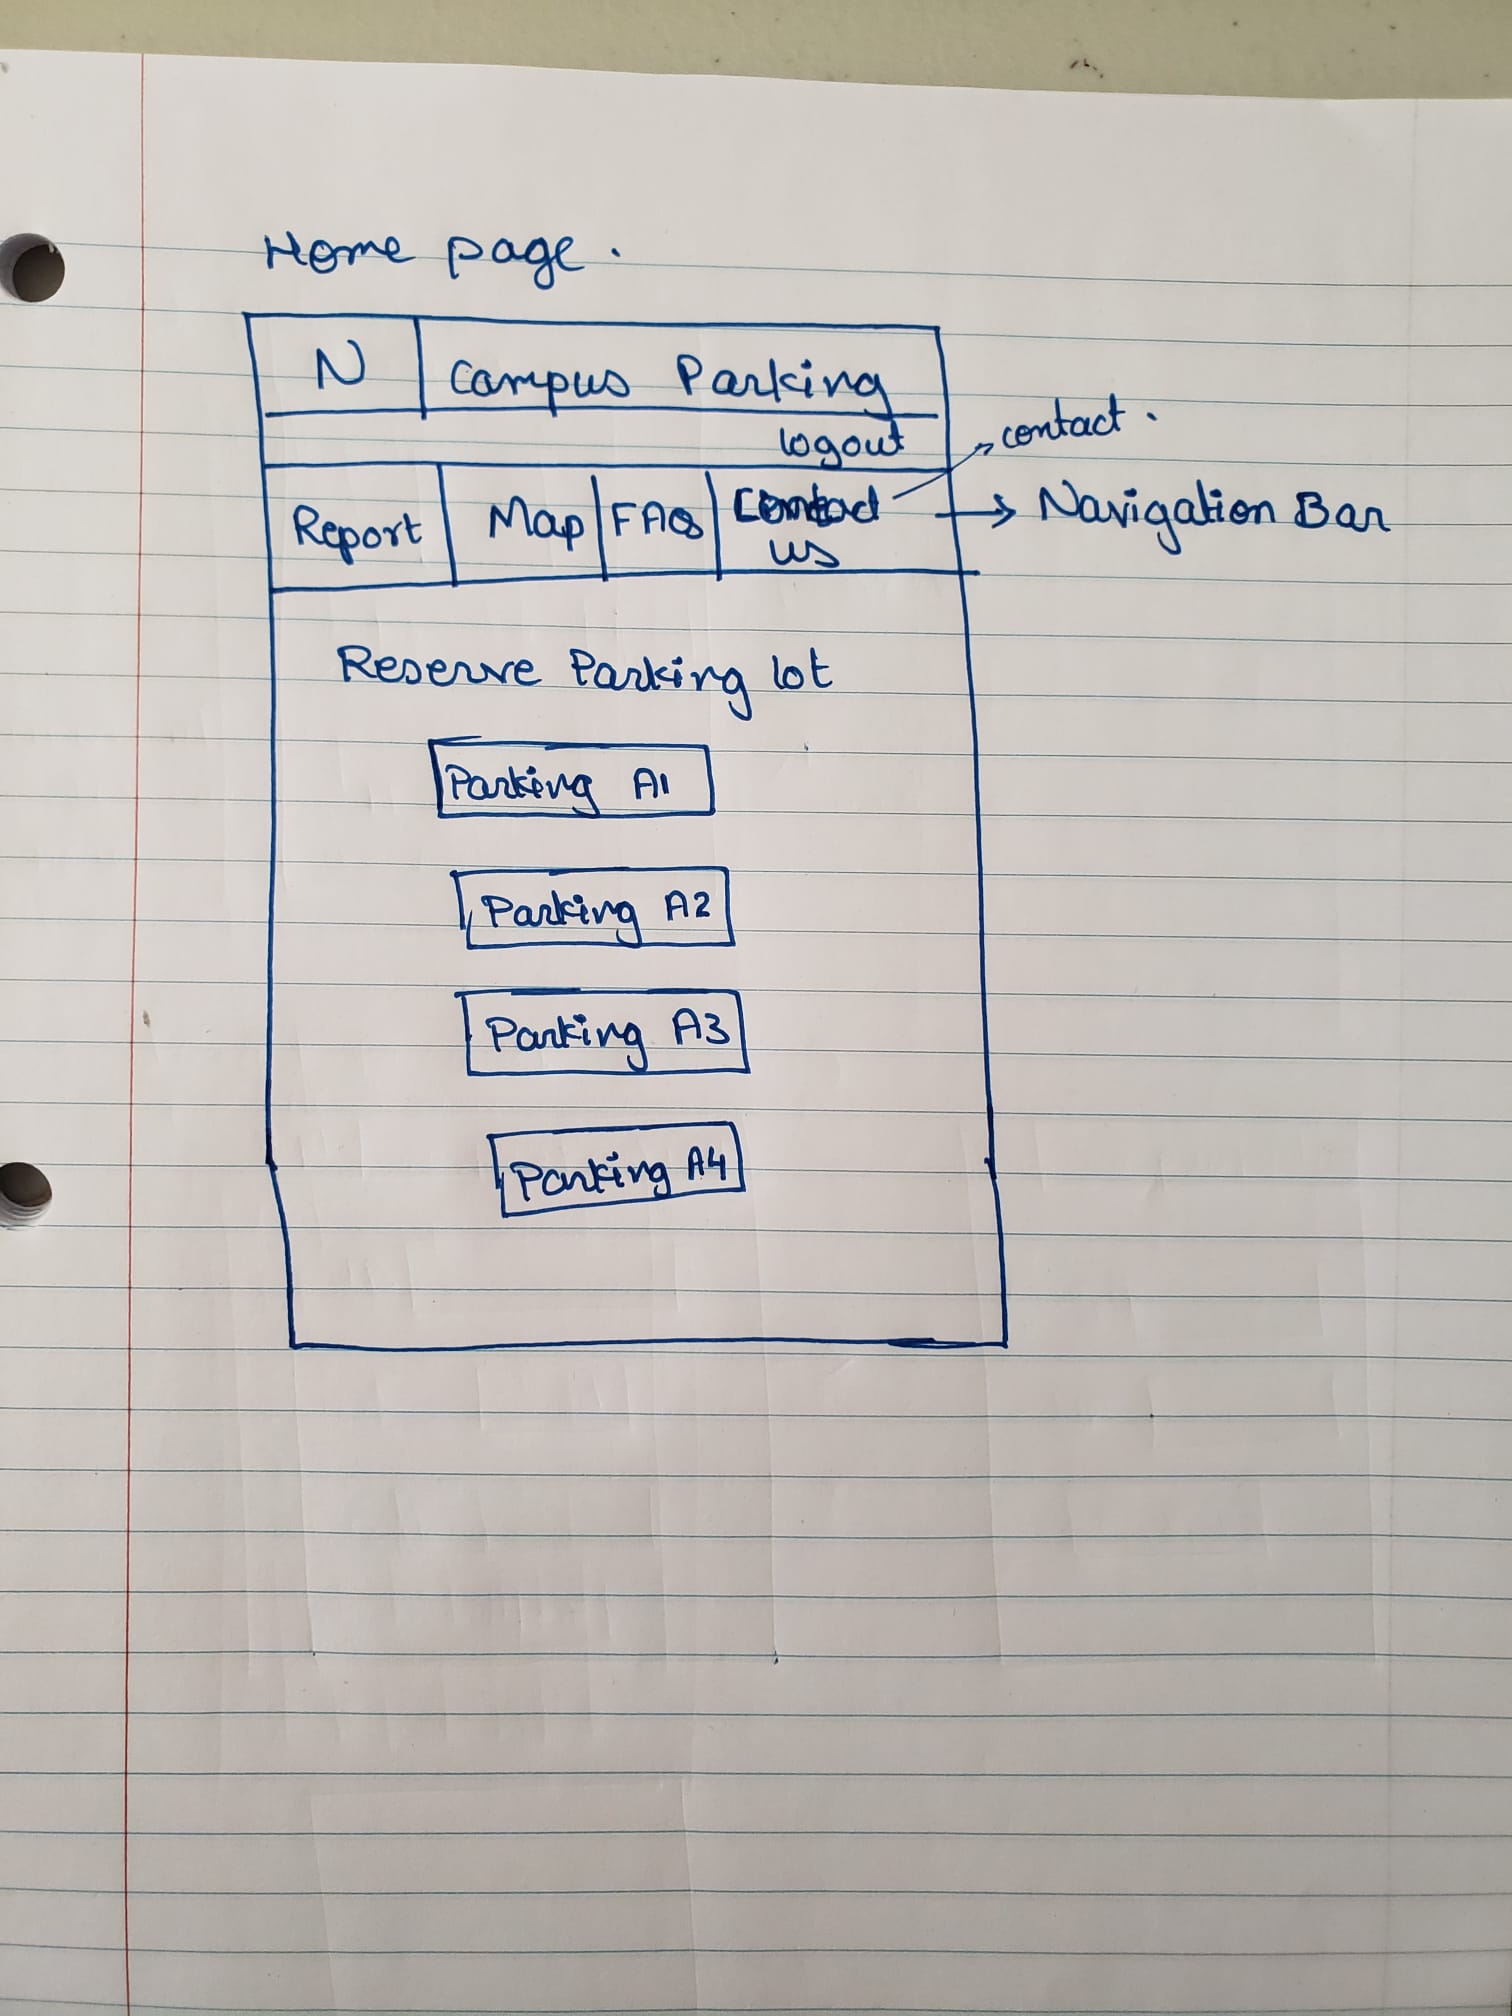 Home page.
N Campus Parking
logout
contact.
Report Map FAQs Contact us
Navigation Bar
Reserve Parking lot
Parking A1
Parking A2
Parking A3
Parking A4